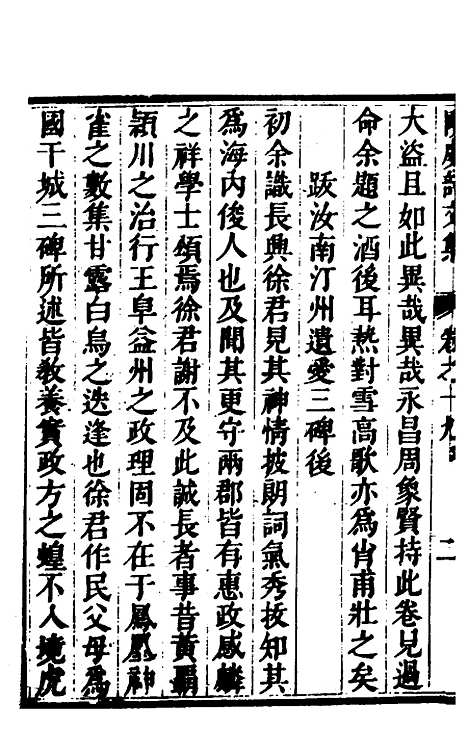 卷之十九
二
大盜且如此異哉異哉永昌周象賢持此卷見過
命余題之酒後耳熱對雪高歌亦為肖甫壯之矣
跋汝南汀州遺愛三碑後
初余識長興徐君見其神情披朗詞氣秀拔知其
為海內俊人也及聞其更守兩郡皆有惠政感麟
之祥學士頌焉徐君謝不及此誠長者事昔黃霸
潁川之治行王阜益州之政理固不在于鳳凰神
雀之數集甘露白烏之迭逢也徐君作民父母為
國干城三碑所述皆教養實政方之蝗不入境虎